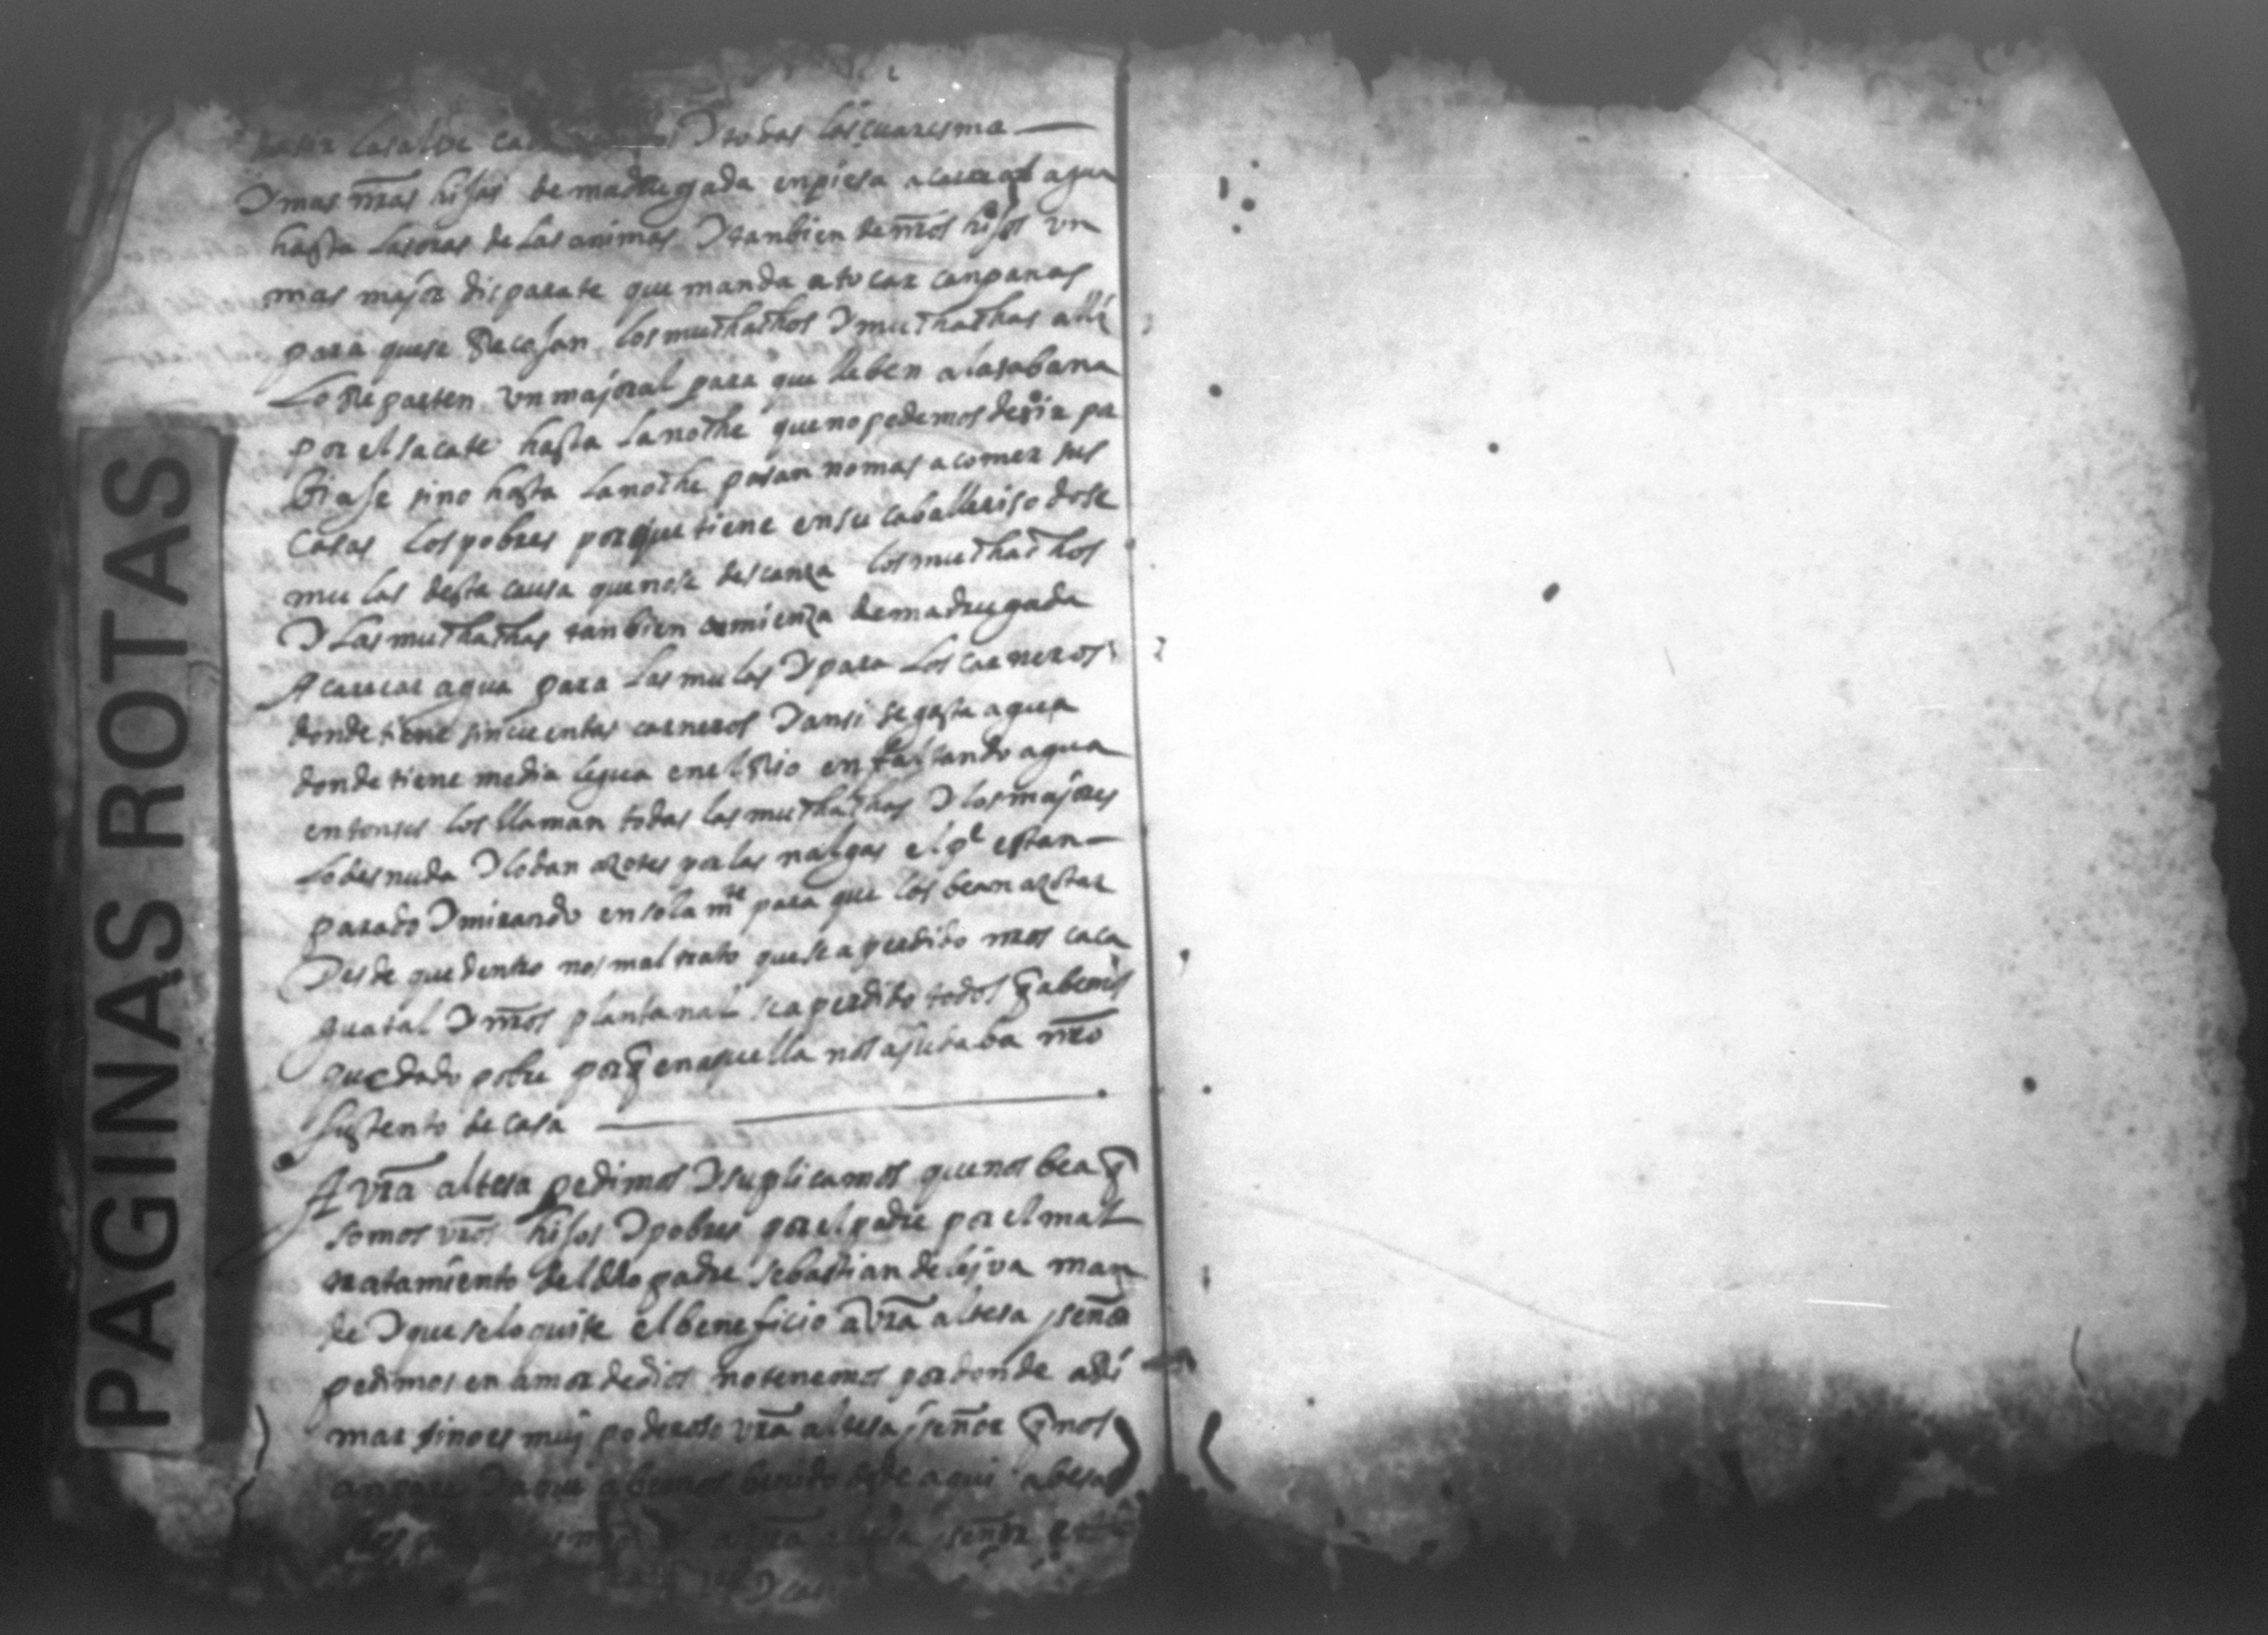 PAGINAS ROTAS
hasen la salbe cada y todas las cuaresma
y mas nr̃as hijas de madrugada enpiesa a acarear agua
hasta las oras de las animas y tanbien de nr̃os hijos un
mas major disparate que manda a tocar canpanas
para que se Recojan los muchachos y muchachas alli
lo Reparten un majoral para que lleben a la sabana
por el sacate hasta la noche que no podemos desir pa
biaje sino hasta la noche pasan nomas a comer sus
casas los pobres porque tiene en su caballeriso dose
mulas desta causa que nose descanza los muchachos
y las muchachas tanbien comienza de madrugada
A carrear agua para las mulas y para los carneros
donde tiene sincuentas carneros y ansi se gasta agua
donde tiene media legua en el Rio en faltando agua
entonses los llaman todas las muchachas y los majores
lo desnuda y lo dan azotes por las nalgas el pe estan
parado y mirando en sola mte para que los bean azotar
Desde que dentro nos mal trato que se a perdido nr̃os caca
guatal y nr̃os plantanal se a perdido todos q̃ abemos
quedado pobre porq̃ en aquella nos ajudaba nr̃o
sustento de casa
A vr̃a altesa pedimos y suplicamos que nos bea q̃
somos vr̃os hijos y pobres por el padre por el mal
tratamiento del dho padre sebastian de lejva man
de y que se lo quite el beneficio a vr̃a altesa j señor
pedimos en amor de dios no tenemos por donde adi
mar sino es muj poderoso vr̃a altesa j señor q̃ nos
anpare ya que abemos benido desde aqui a besar
vr̃a altesa j señor